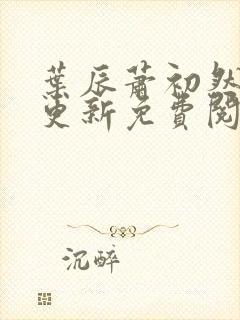 葉辰蕭初然
更新免費閱
沉醉